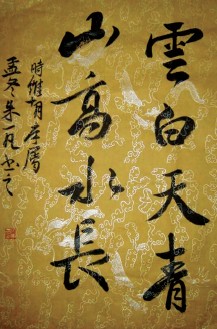 雲白天青
山高水長
時維胡序屬
孟冬朱一凡书之